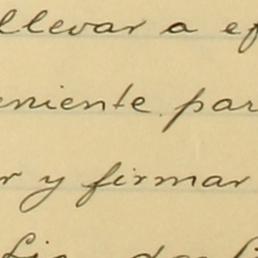 llevar a ef
eniente par
r y firmar